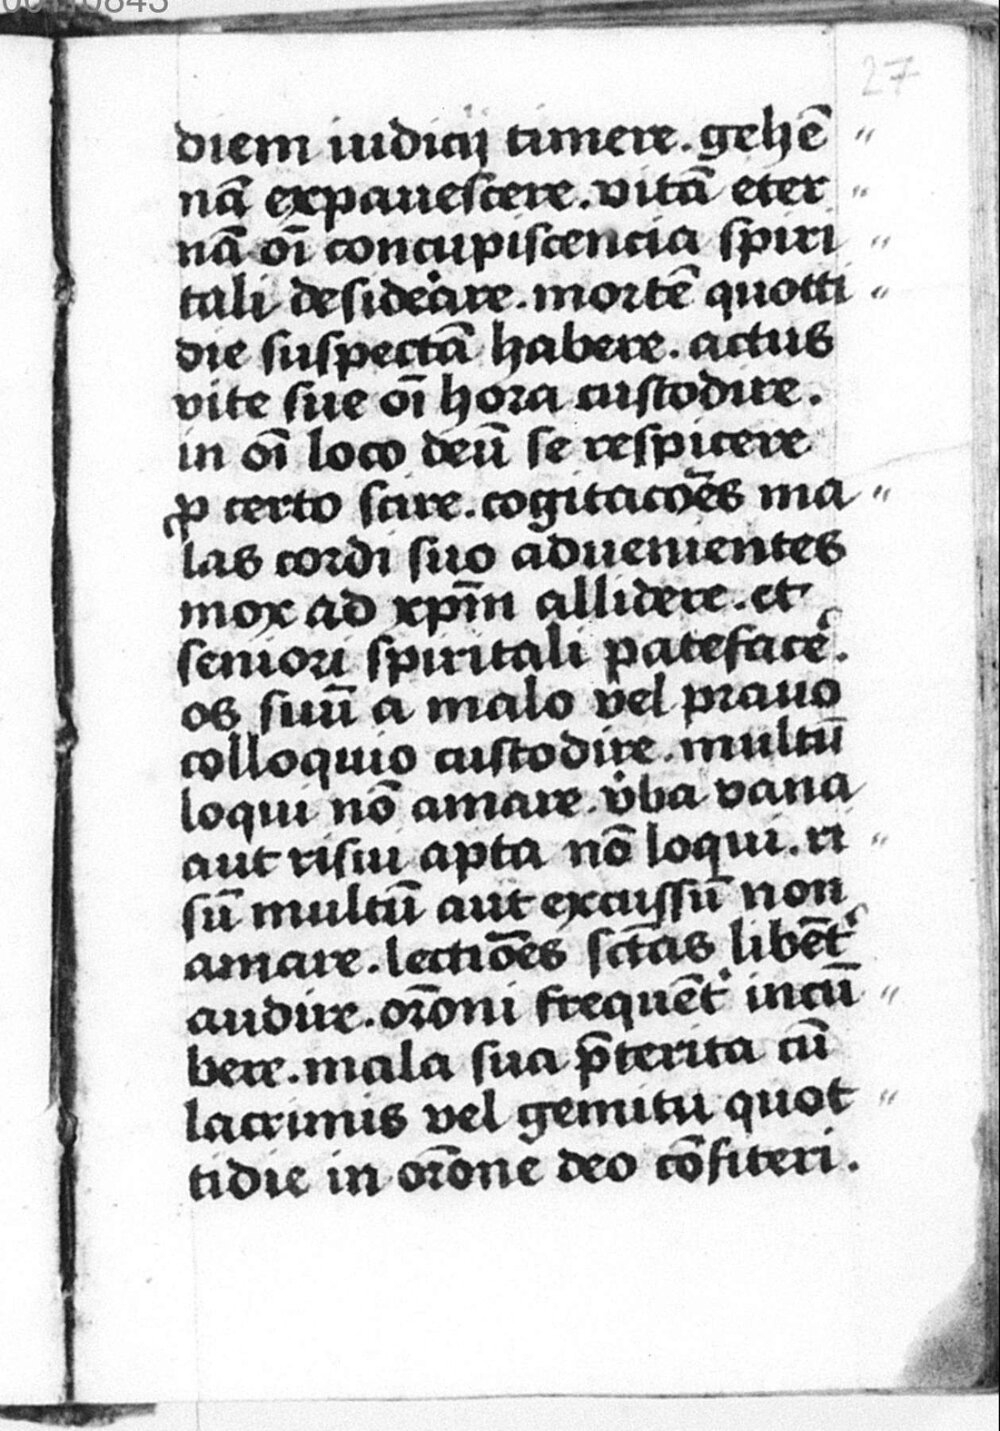 27
diem iudicij timere. gehē〃
nā expauescere. vitā eter〃
nā oī concupiscencia spiri〃
tali desiderare. mortē quotti〃
die suspectā habere. actus
vite sue oī hora custodire.
in oī loco deū se respicere
ꝓ certo scire. cogitacōes ma〃
las cordi suo aduenientes
mox ad xp̄m allidere. et
seniori spiritali patefacē.
os suū a malo vel prauo
colloquio custodire. multū
loqui nō amare. v̉ba vana
aut risui apta nō loqui. ri〃
sū multū aut excussū non
amare. lectiōes sc̄tas libēt᾽
audire. or̄oni frequēt᾽ incū〃
bere. mala sua p̄terita cū
lacrimis vel gemitu quot〃
tidie in or̄one deo cōfiteri.